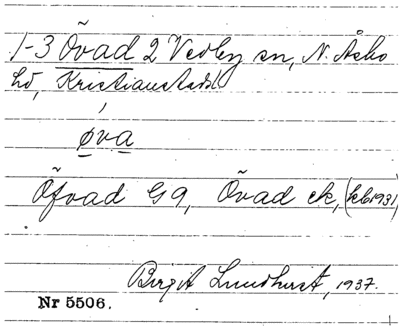 1-3 Övad 2 Vedby sn, N. Åsbo
hd, Kristianstads l
øva
Öfvad G 9, Övad ek, (kb 1931)
Birgit Lundqvist, 1937.
Nr 5506.